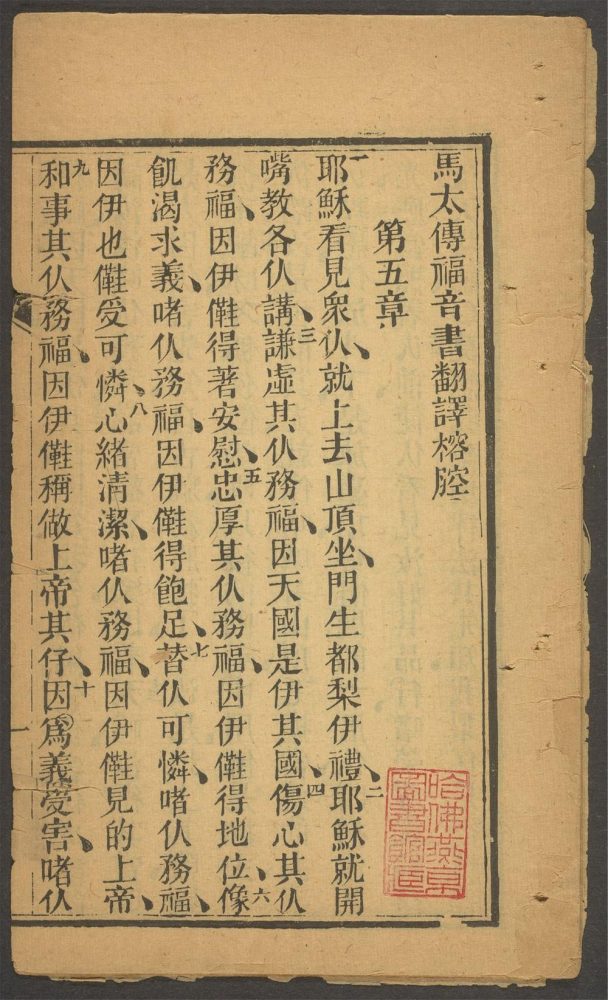 馬太傳福音書翻譯榕腔
第五章
一耶穌看見衆仈就上去山頂坐門生都梨伊禮二耶穌就開
嘴教各仈講三謙虛其仈務福因天國是伊其國四傷心其仈
務福因伊𠋡得著安慰五忠厚其仈務福因伊𠋡得地位六像
飢渴求義啫仈務福因伊𠋡得飽足七替仈可憐啫仈務福
因伊也𠋡受可憐八心緒清潔啫仈務福因伊𠋡見的上帝
九和事其仈務福因伊𠋡稱做上帝其仔十因爲義受害啫仈
一
哈佛燕京
圖書館